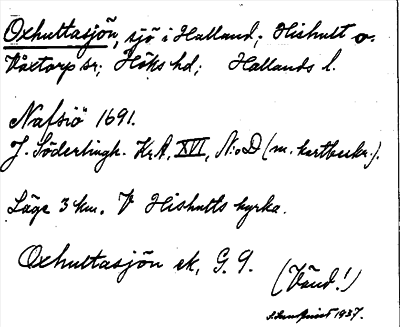 Oxhultasjön, sjö i Halland; Hishult o.
Våxtorp sr; Höks hd; Hallands l.
Nafsiö 1691.
J. Söderlingh. Kr.A, XVI, N:o D (m. kartbeskr.).
Läge 3 km. V Hishults kyrka.
Oxhultasjön ek, G. 9.
(Vänd!)
1937.